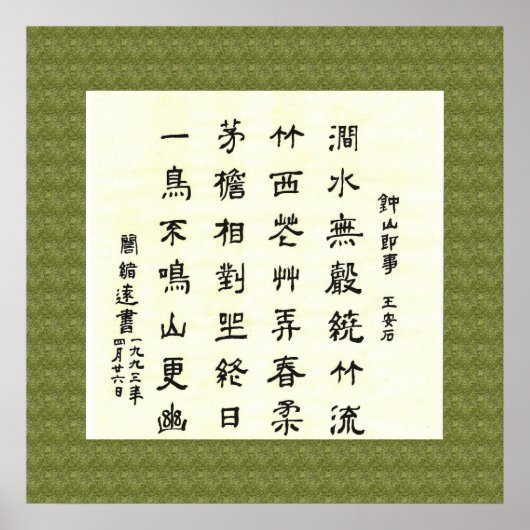 鉀山即事 王安石
澗水無聲繞竹流
竹西花艸弄春柔
茅檐相對坐終日
一鳥不鳴山更幽
縮遠書
一九九三年
四月廿六日